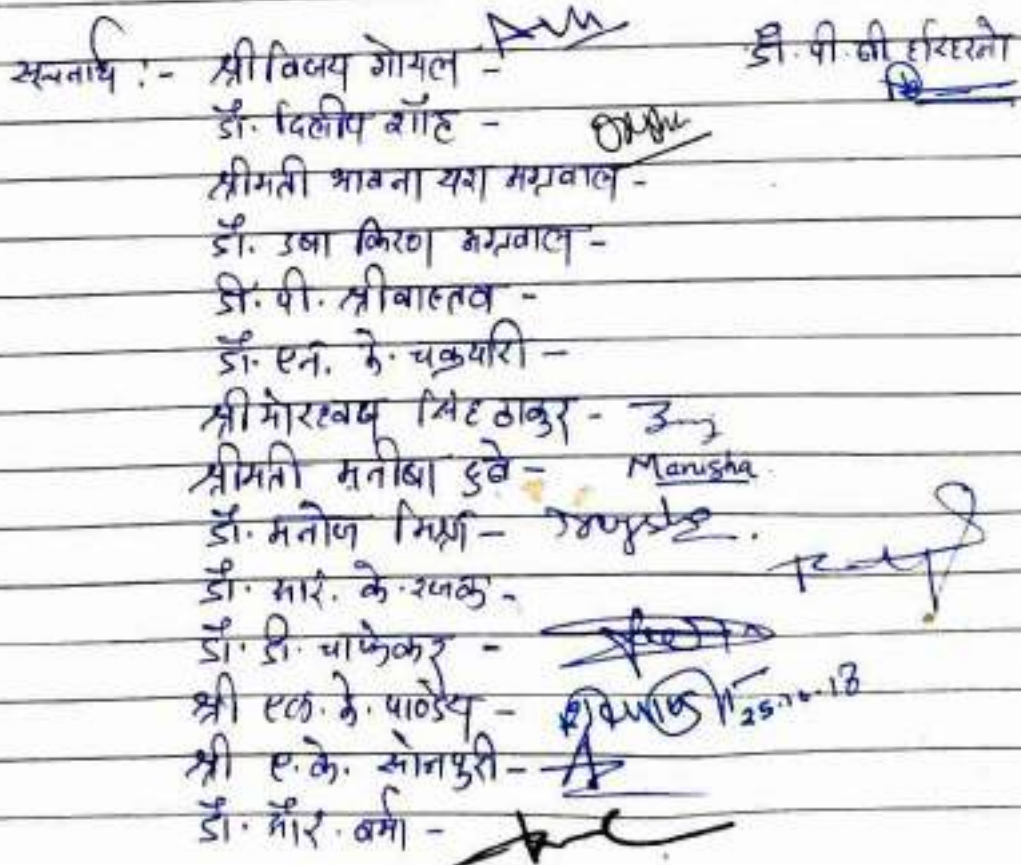 सूचनार्थ :- श्री विजय गोयल -
डॉ. पी. सी.
डॉ. दिलीप शॉह -
श्रीमती भावना यश अग्रवाल -
डॉ. उषा किरण अग्रवाल -
डॉ. पी. श्रीवास्तव -
डॉ. एन. के. चक्रधारी -
श्री मोरध्वज सिंह ठाकुर -
श्रीमती मनीषा दुबे - Manisha
डॉ. मनोज मिश्रा -
डॉ. आर. के. रजक -
डॉ. डी. चाफेकर -
श्री एल. के. पाण्डेय - 25.10.18
श्री ए. के. सोनपुरी -
डॉ. आर. वर्मा -